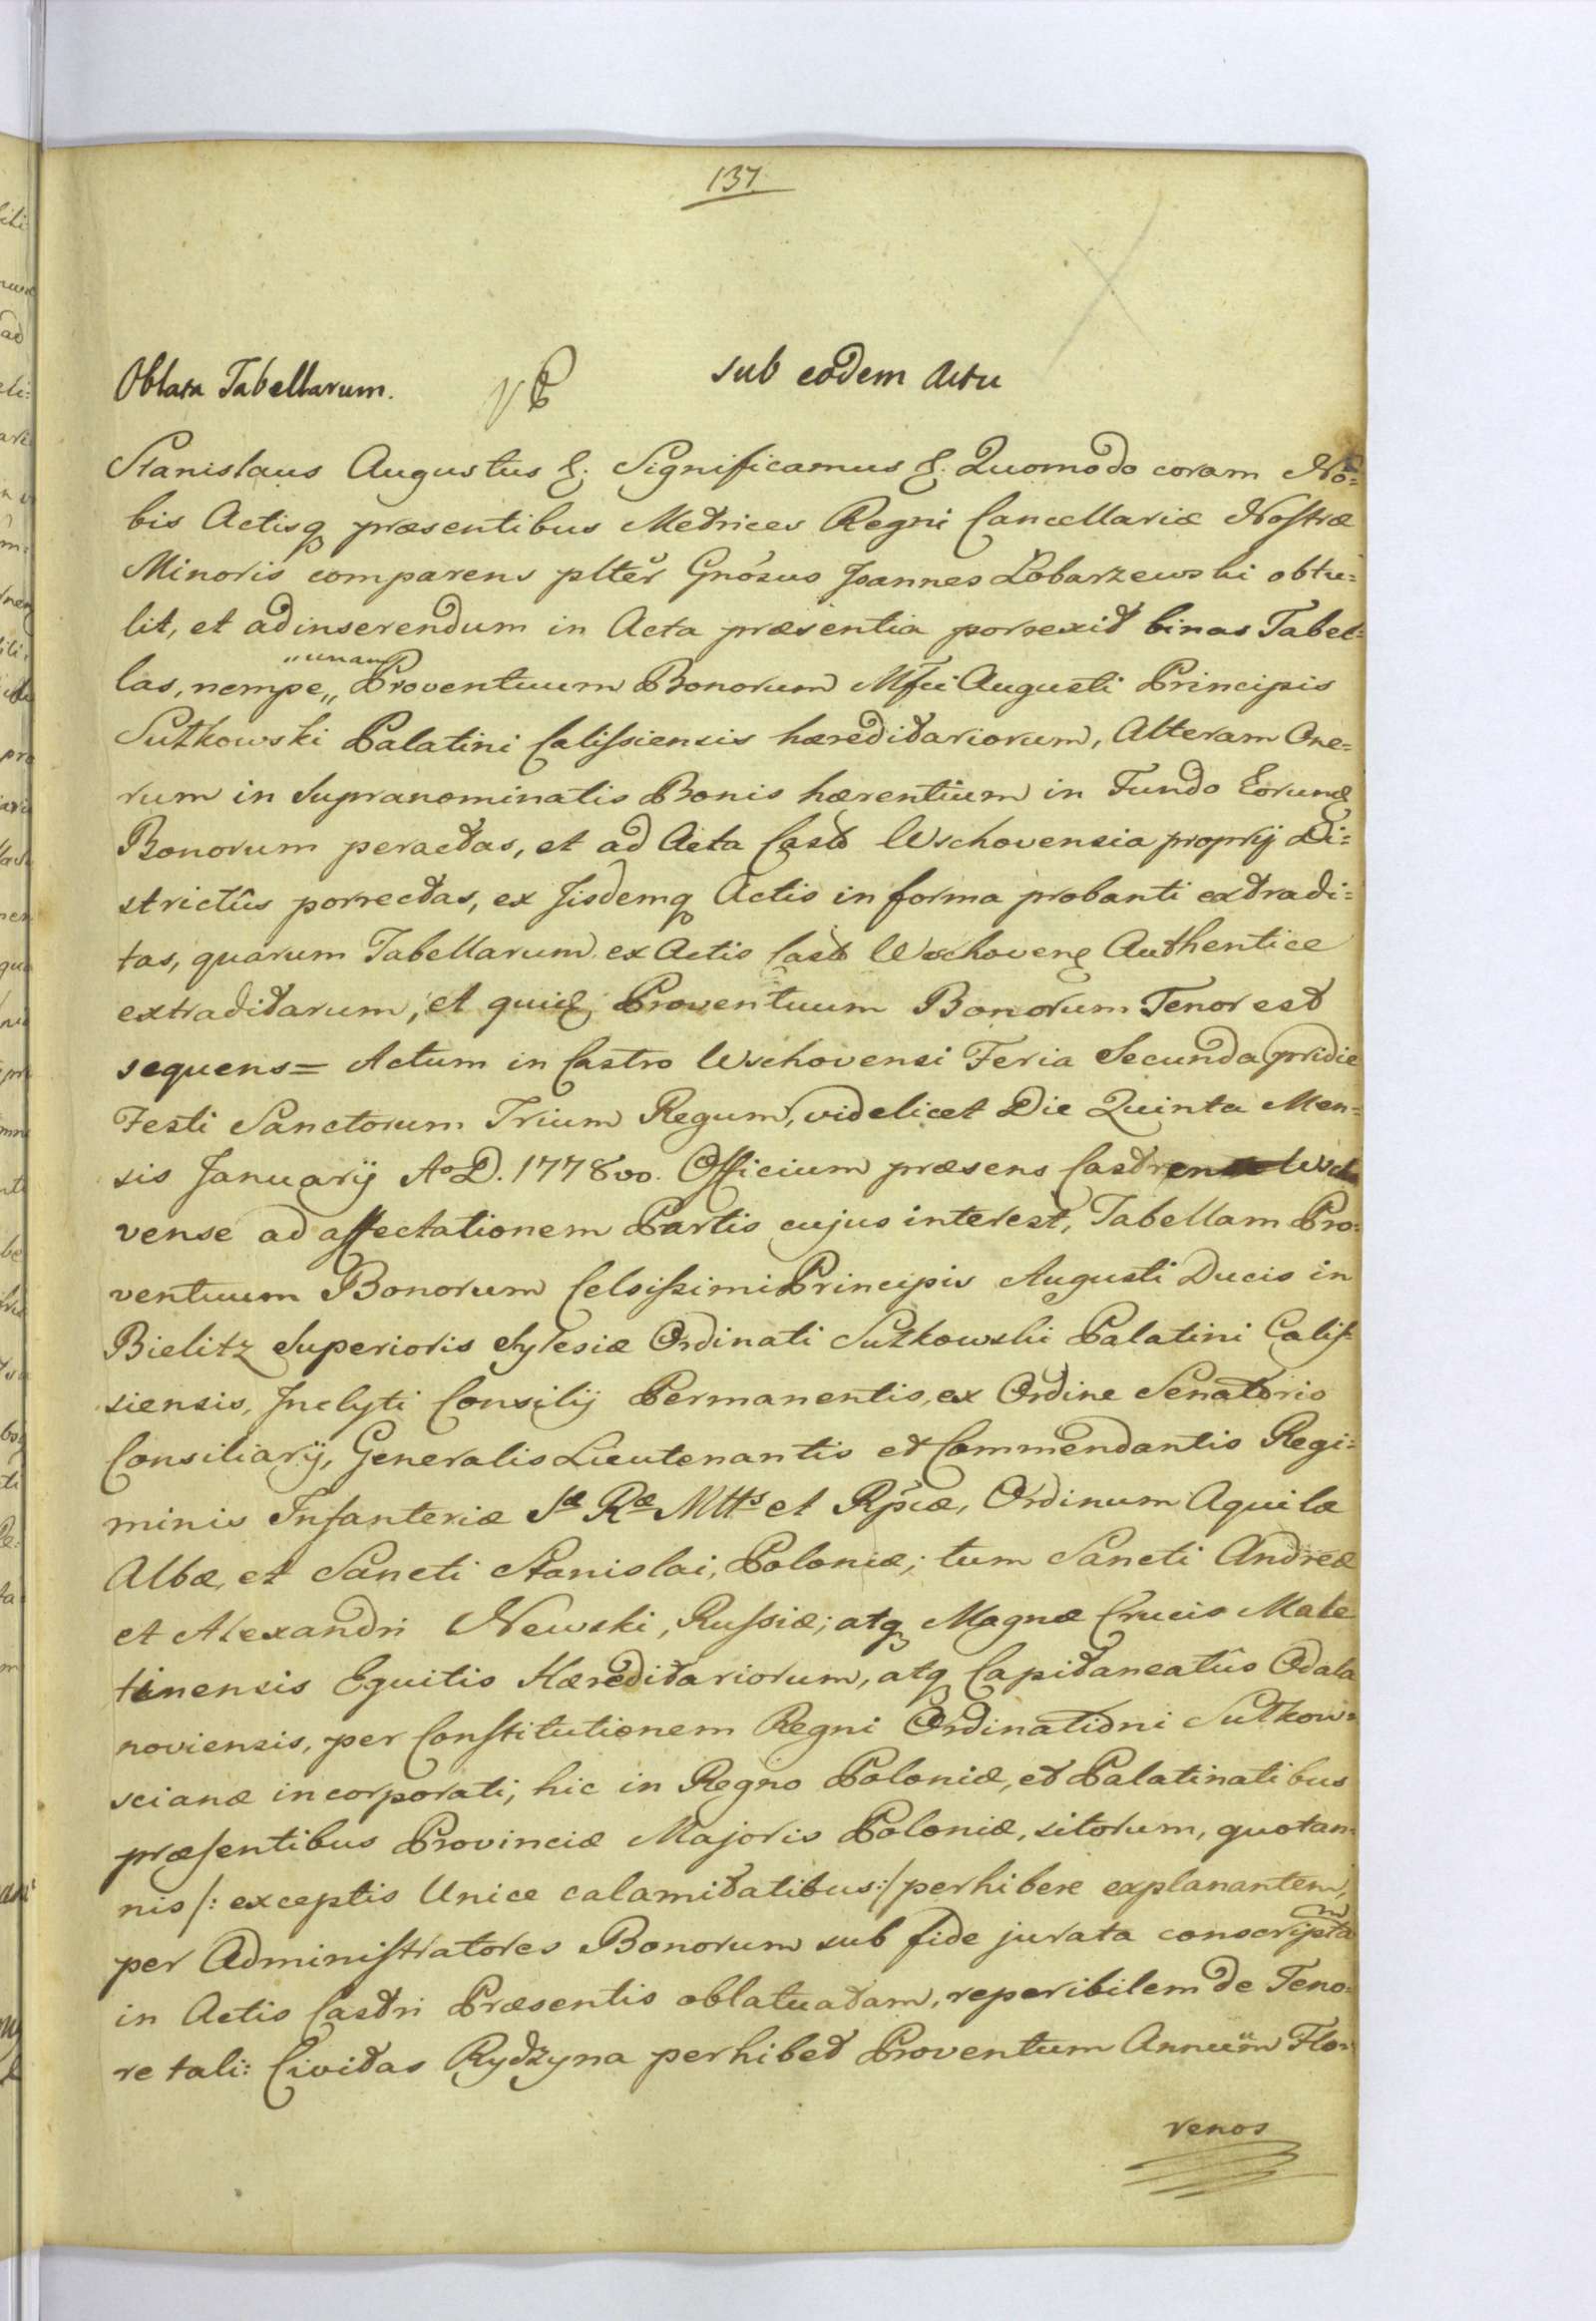 137.
Oblata Tabellarum. sub eodem Actu
Stanislaus Augustus &. Significamus &. Quomodo coram No=
bis Actisq præsentibus Metrices Regni Cancellariæ Nostræ
Minoris comparens pltẽr Gnosus Joannes Łobarzewski obtu=
lit, et ad inserendum in Acta præsentia porrexit binas Tabel=
„unam
las, nempe„ Proventuum Bonorum Mfci Augusti Principis
Sułkowski Palatini Calissiensis hæreditariorum, Alteram One=
rum in Supranominatis Bonis hærentium in Fundo Eorund
Bonorum peractas, et ad Acta Castr Wschovensia proprij Di=
strictûs porrectas, ex Jisdemq Actis in forma probanti extradi=
tas, quarum Tabellarum ex Actis Castr Wschovens Authentice
extraditarum, et quid. Proventuum Bonorum Tenor est
sequens= Actum in Castro Wschovensi Feria Secunda pridie
Festi Sanctorum Trium Regum, videlicet Die Quinta Men=
sis Januarij Aº D. 1778vo. Officium præsens Castrense Wscho
vense ad affectationem Partis cujus interest, Tabellam Pro=
ventuum Bonorum Celsissimi Principis Augusti Ducis in
Bielitz Superioris Sylesiæ Ordinati Sułkowski Palatini Calis=
siensis, Jnclyti Consilij Permanentis, ex Ordine Senatorio
Consiliarij, Generalis Lieutenantis et Commendantis Regi=
minis Infanteriæ Sæ Ræ Mtts et Rpcæ, Ordinum Aquilæ
Albæ, et Sancti Stanislai, Poloniæ; tum Sancti Andreæ
et Alexandri Newski, Russiæ; atq Magnæ Crucis Male
tinensis Equitis Hæreditariorum, atq Capitaneatûs Odala
noviensis, per Constitutionem Regni Ordinationi Sułkow=
scianæ incorporati; hic in Regno Poloniæ, et Palatinatibus
præsentibus Provinciæ Majoris Poloniæ, sitorum, quotan=
nis /: exceptis Unice calamitatibus :/ perhibere explanantem,
per Administratores Bonorum sub fide jurata conscriptam
in Actis Castri Præsentis oblatuatam, reperibilem de Teno=
re tali: Civitas Rydzyna perhibet Proventum Annuum Flo=
renos